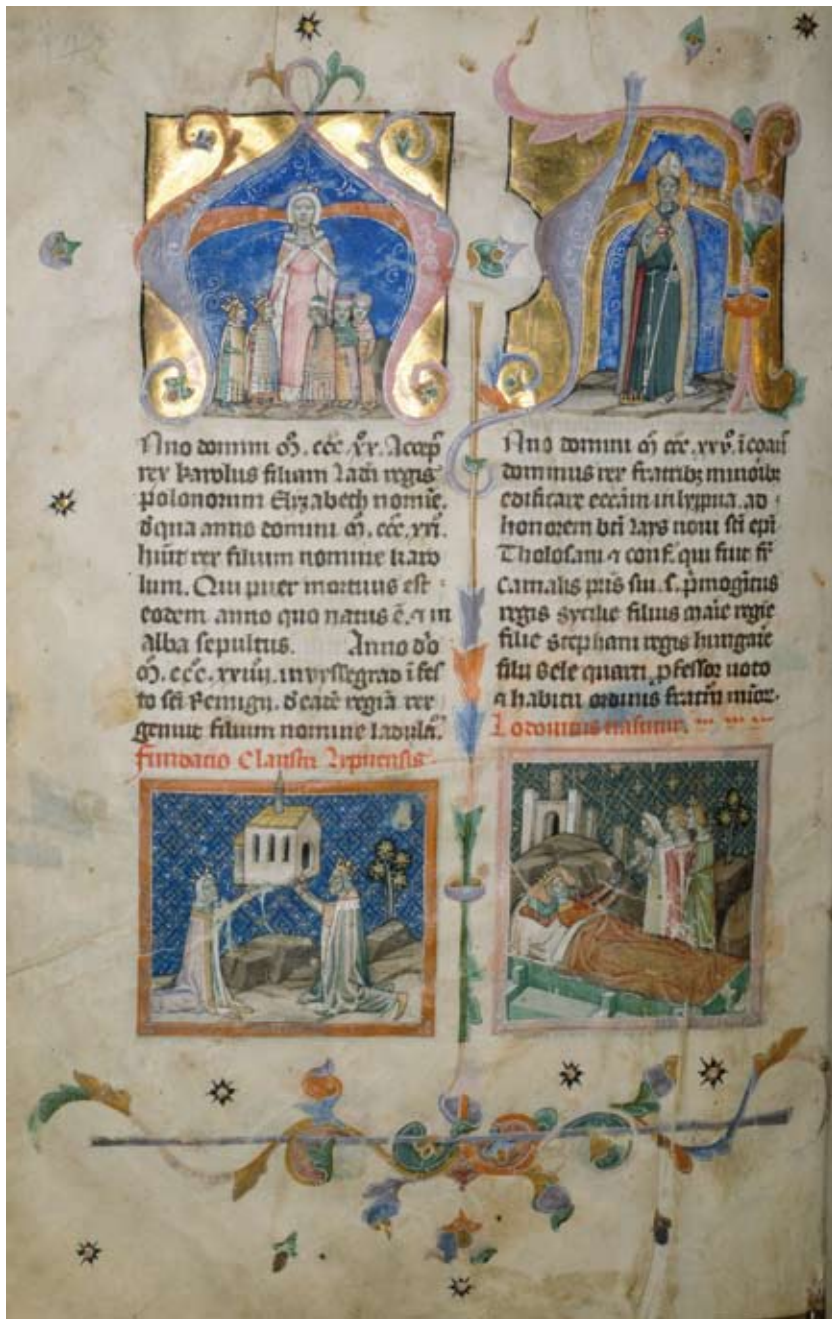 Anno domini M. ccc. xx. Accep
rex karolus filiam ladi regis
polonorum Elyzabeth nomie.
d qua anno domini M. ccc. xxi.
huit rex filium nomine karo
lum. Qui puer mortuus est
eodem anno quo natus e. 7 in
alba sepultus. Anno do
M. ccc. xxiiii. in vyssegrad i fes
to sci Remigii. d eade regia rex
genuit filium nomine ladizla
fundacio Claustri lypuensis.
Anno domini M ccc. xxv. icoau
dominus rex fratribz minoibz
edificare ecciam in lyppua. ad
honorem bti lays noui sci epi
Tholosani 7 conf. qui fuit fr
carnalis pris sui. s. pmogitus
regis sycilie filius maie regie
filie stephani regis hungaie
filii Bele quarti. pfessor uoto
7 habitu ordinis fratrum mior.
Lodouicus nascitur.